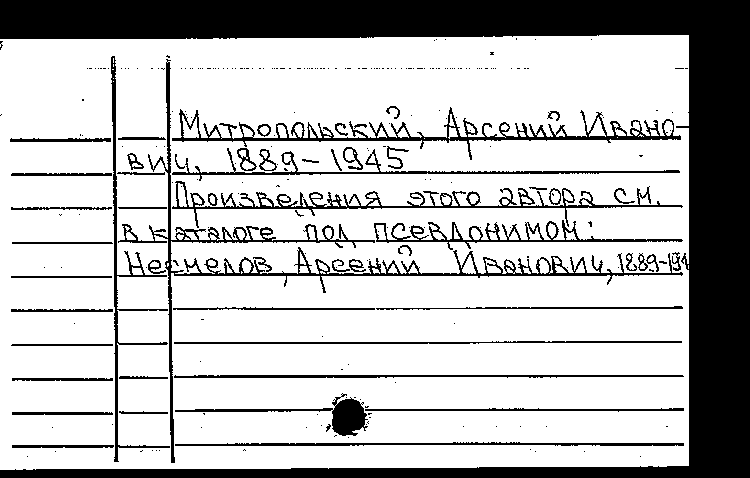 Митропольский, Арсений Ивано-
вич, 1889-1945
Произведения этого автора см.
в каталоге под псевдонимом:
Несмелов, Арсений Иванович, 1889-194